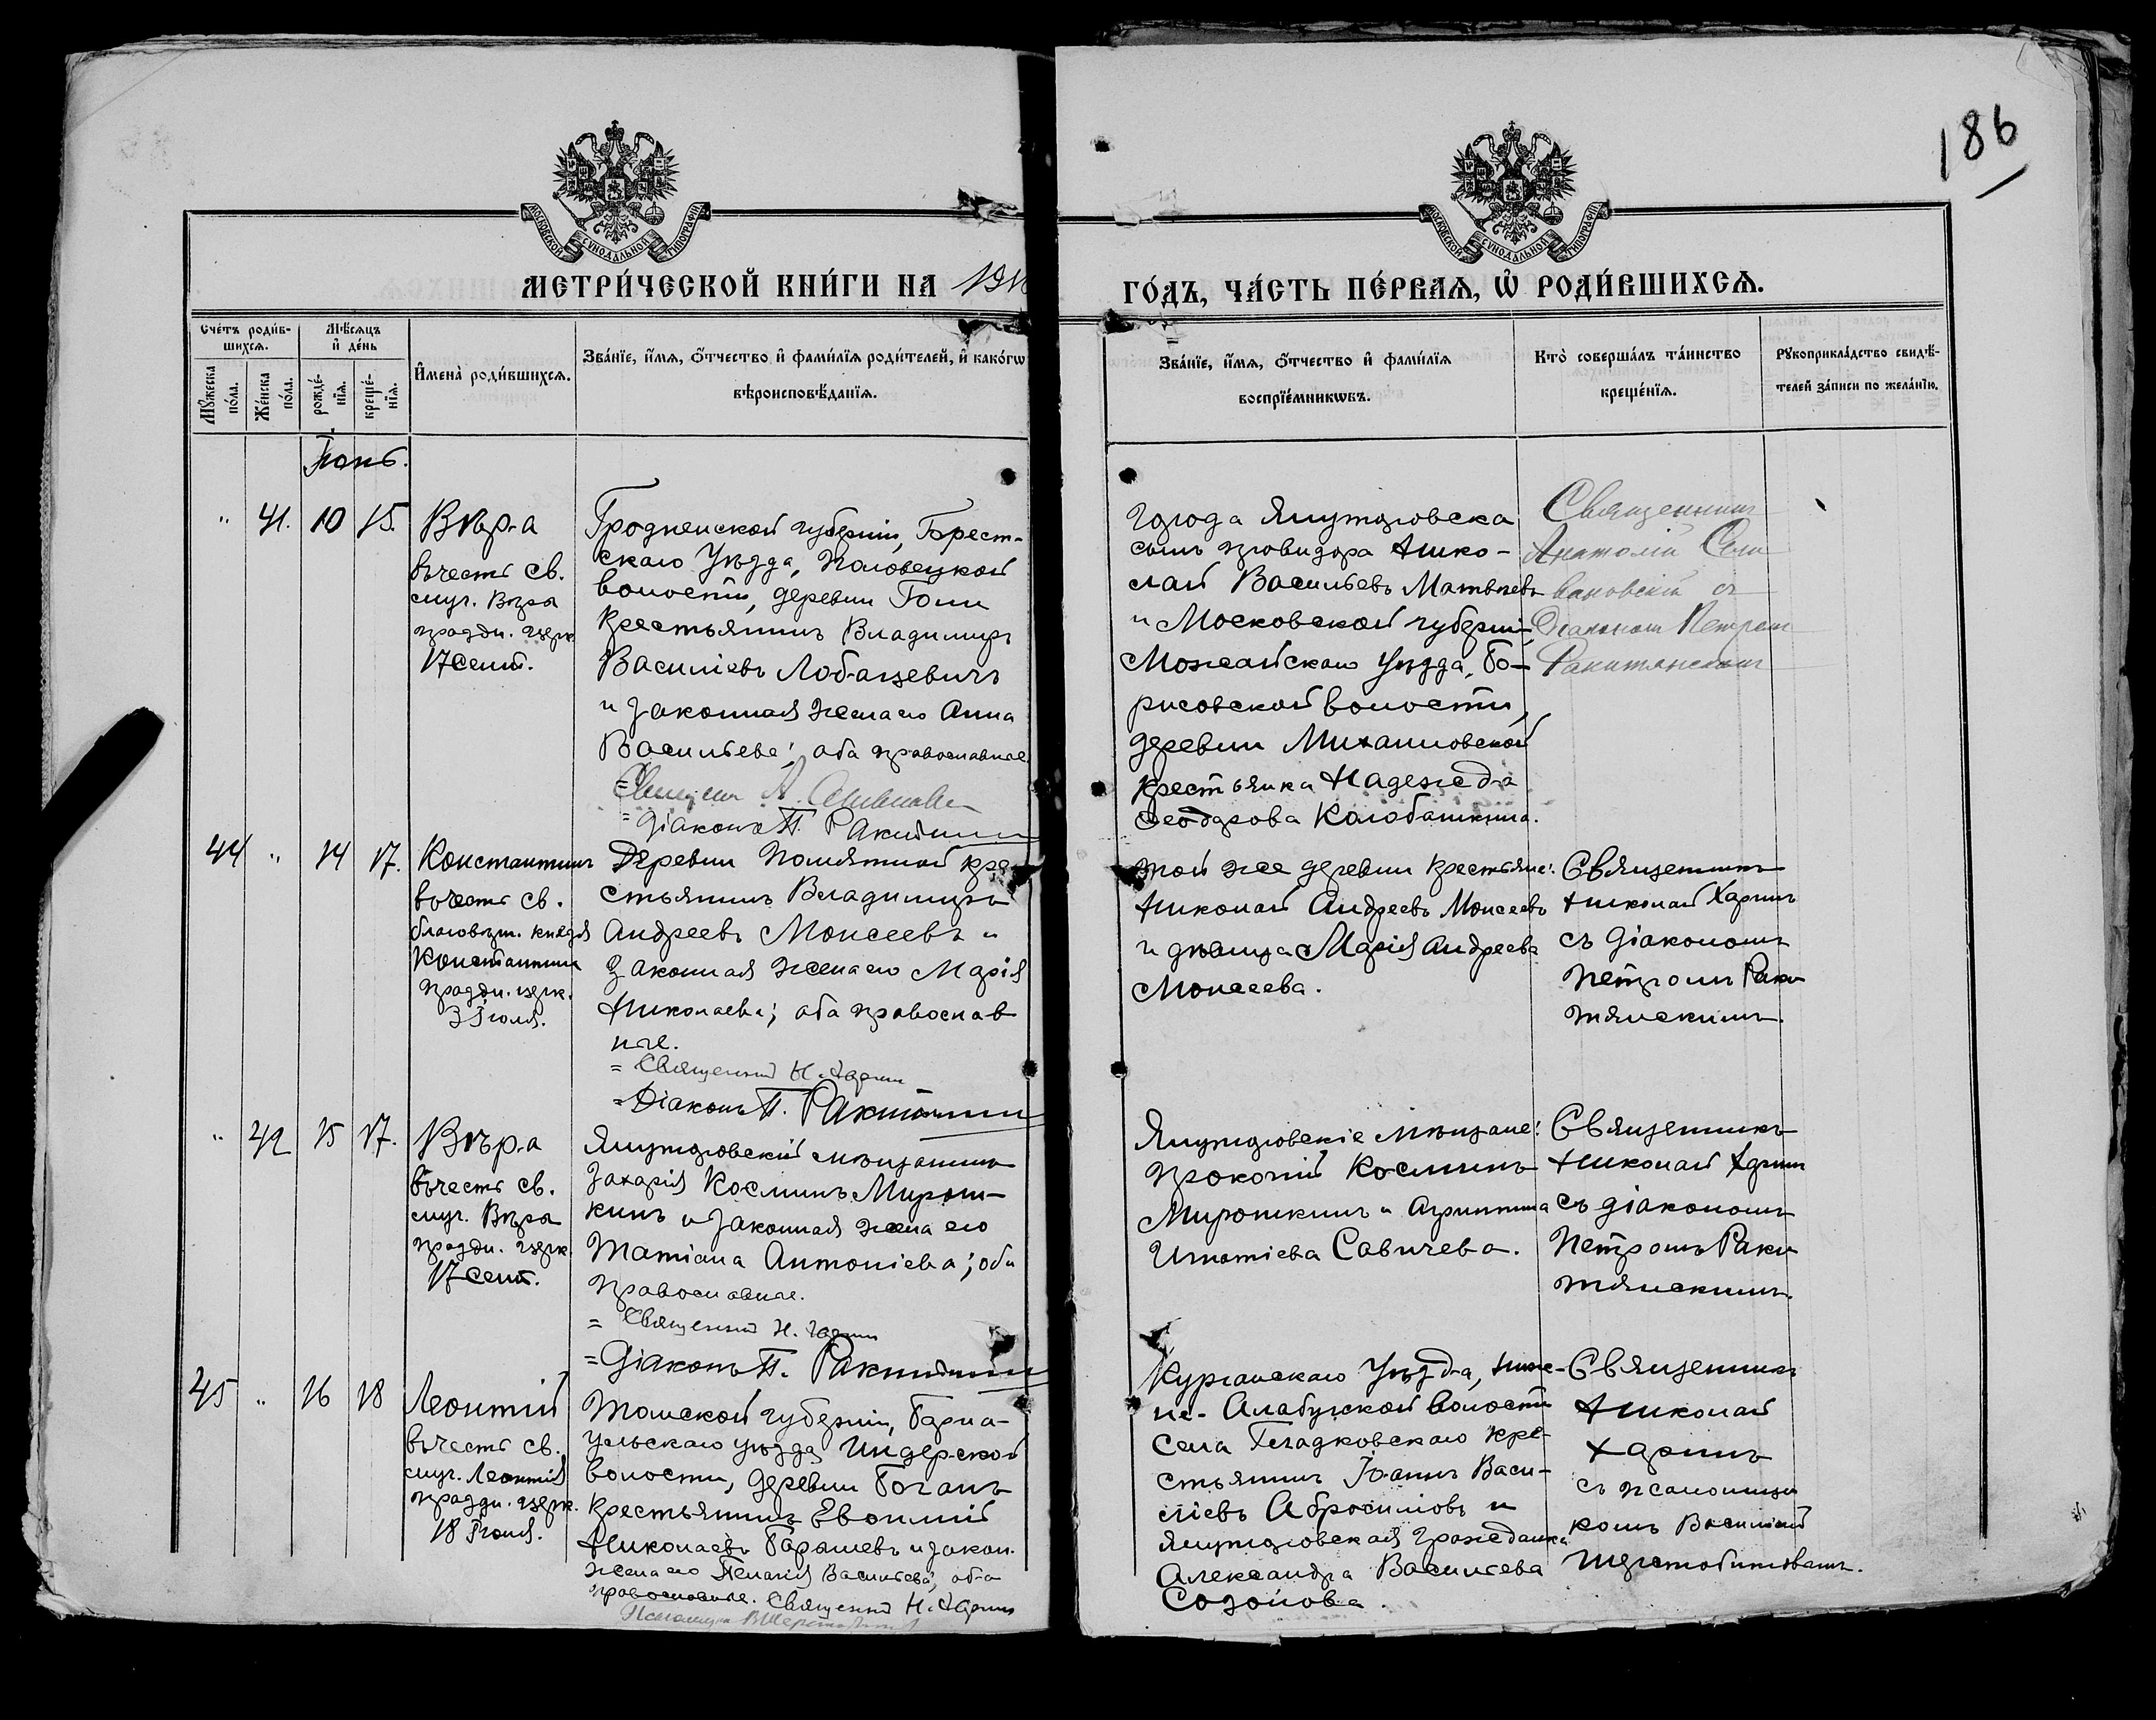 186
МОСКОВСКОЙ СѴНОДАЛЬНОЙ ТИПОГРАФІИ
МОСКОВСКОЙ СѴНОДАЛЬНОЙ ТИПОГРАФІИ
МЕТРИ́ЧЕСКОЙ КНИ́ГИ НА 191
ГО́ДЪ, ЧА́СТЬ ПЕ́РВАѦ, Ѡ҆ РОДИ́ВШИХСѦ.
Сче́тъ роди́в-
шихсѧ.
Мѣ́сѧцъ
и҆ де́нь
Мꙋ́жеска по́ла.
Же́нска по́ла.
рожде́-
нїѧ.
креще́-
нїѧ.
И҆мена̀ роди́вшихсѧ.
Зва́нїе, и҆́мѧ, ѻ҆́тчество и҆ фами́лїѧ роди́телей, и҆ како́гѡ
вѣроисповѣ́данїѧ.
Зва́нїе, и҆́мѧ, ѻ҆́тчество и҆ фами́лїѧ
воспрїе́мникѡвъ.
Кто̀ соверша́лъ та́инство
креще́нїѧ.
Рꙋкоприкла́дство свидѣ́-
телей за́писи по жела́нїю.
Іюнь.
" 41. 10 15.
Вѣра
въ честь св.
муч. Вѣры
праздн. церк.
17 Сент.
Гродненской губерніи, Брест-
скаго Уѣзда, Половецкой
волости, деревни Гали
крестьянинъ Владиміръ
Василіевъ Лобацевичъ
и законная жена его Анна
Васильева; оба православные.
=Священ А.
=Діаконъ П. Ракитянскій
Города Ялуторовска
сынъ провизора Нико-
лай Васильевъ Матвѣевъ
и Московской губерніи
Можайскаго Уѣзда, Бо-
рисовской волости,
деревни Михаиловской
крестьянка Надежда
Ѳеодорова Колобашкина.
Священникъ
Анатолій Сели
вановскій съ
Діакономъ Петромъ
Ракитянскимъ
44 " 14 17.
Константинъ
въ честь св.
благовѣрн. князя
Константина
праздн. церк.
3 Іюля.
Деревни Памятной кре-
стьянинъ Владиміръ
Андреевъ Моисеевъ и
законная жена его Марія
Николаева; оба православ
ные.
= Священникъ Н. Харинъ
=Діаконъ П. Ракитянскій
той же деревни крестьяне:
Николай Андреевъ Моисеевъ
и дѣвица Марія Андреева
Моисеева.
Священникъ
Николай Харинъ
съ діакономъ
Петромъ Раки
тянскимъ.
" 42 15 17.
Вѣра
въ честь св.
муч. Вѣры
праздн. церк.
17 Сент.
Ялуторовскій мѣщанинъ
Захарія Косминъ Мирош-
кинъ и законная жена его
Татіана Антоніева; оба
православные.
= Священникъ Н. Харинъ
=Діаконъ П. Ракитянскій
Ялуторовскіе мѣщане:
Прокопій Косминъ
Мирошкинъ и Агрипина
Игнатіева Савичева.
Священникъ
Николай Харинъ
съ діакономъ
Петромъ Раки
тянскимъ.
45 " 16 18
Леонтій
въ честь св.
муч. Леонтія
праздн. церк.
18 Іюня.
Томской губерніи, Барна-
ульскаго уѣзда Индерской
волости, деревни Боганъ
крестьянинъ Евѳимій
Николаевъ Барышевъ и закон.
жена его Пелагія Васильева; оба
православные. Священникъ Н. Харинъ
Псаломщикъ В. Шерстобитовъ
Курганскаго Уѣзда, Ниж-
не-Алабугской волости
Села Гладковскаго кре-
стьянинъ Іоаннъ Васи-
ліевъ Абросимовъ и
Ялуторовская гражданка
Александра Васильева
Созонова.
Священникъ
Николай
Харинъ
съ псаломщи
комъ Василіемъ
Шерстобитовымъ.